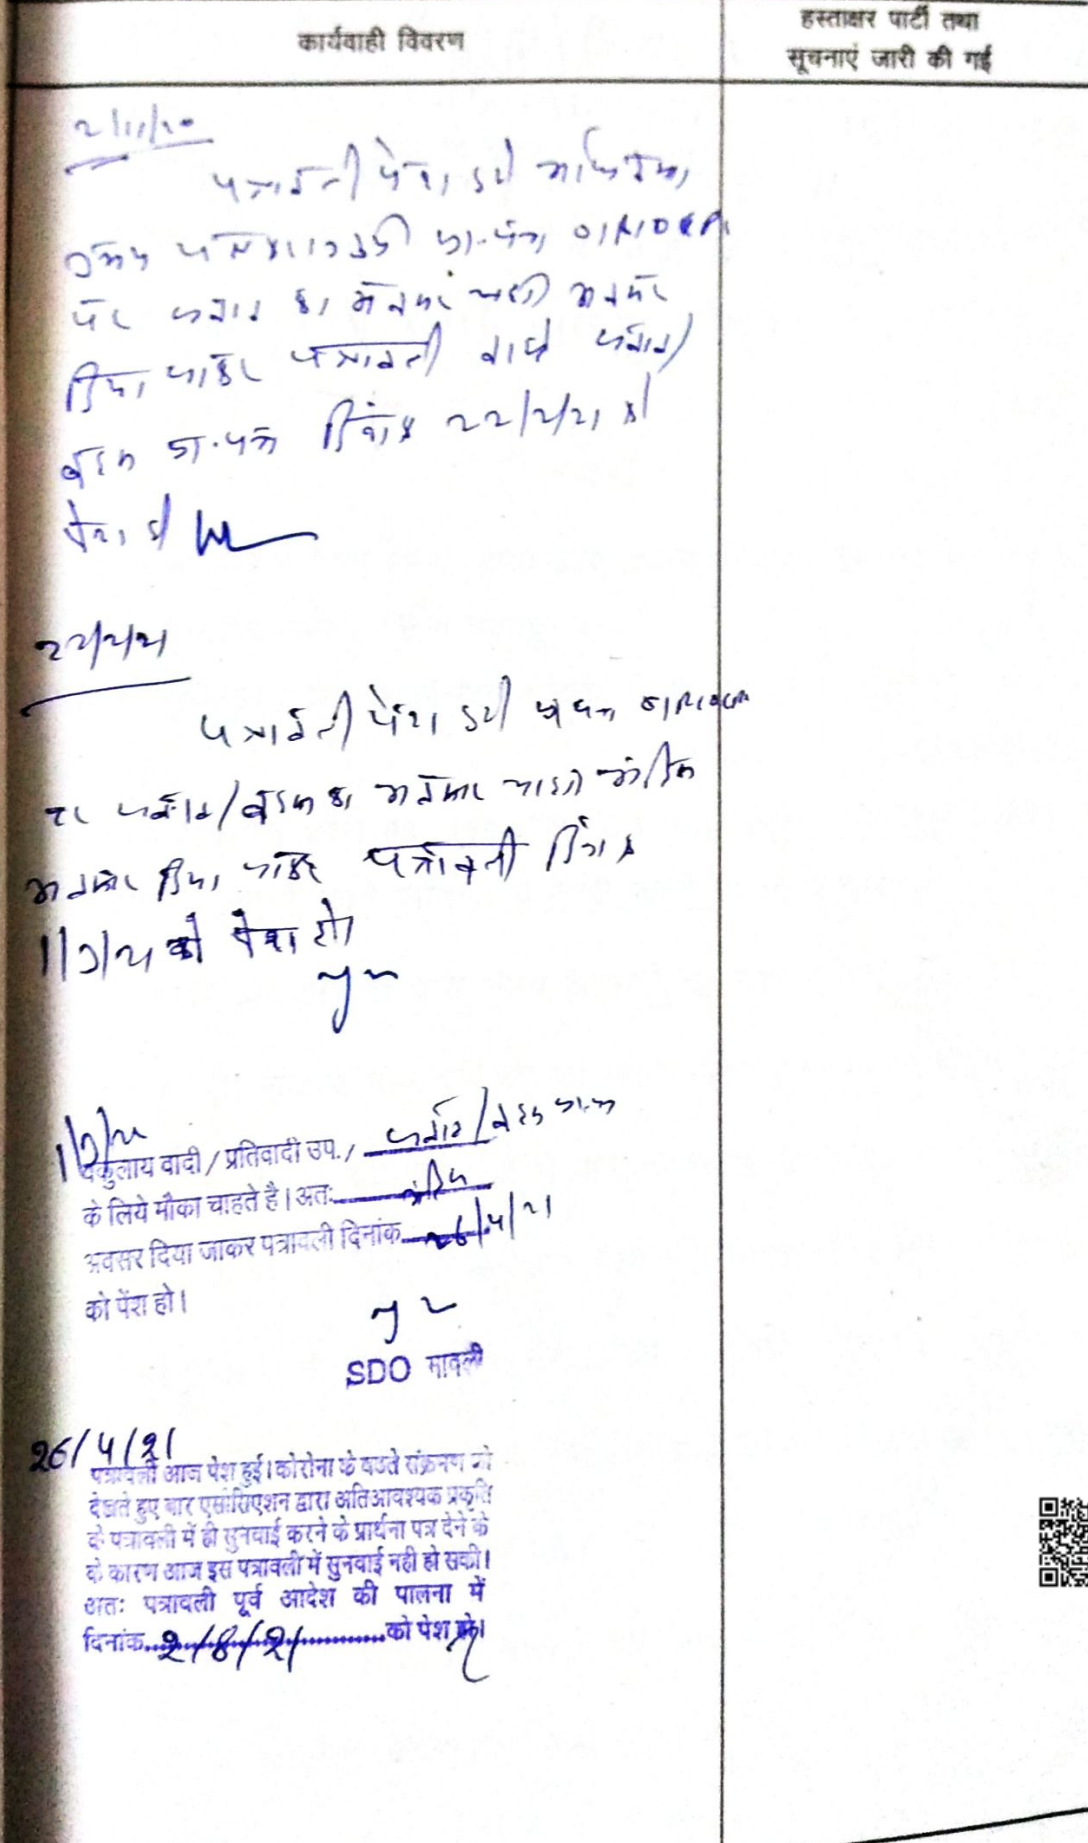 कार्यवाही विवरण
हस्ताक्षर पार्टी तथा
सूचनाएं जारी की गई
2/11/20
पत्रावली पेश हुई
पर जवाब का अवसर चाहा अवसर
दिया जाकर पत्रावली वास्ते जवाब/
बहस प्रा.पत्र दिनांक 22/2/21 को
पेश हो
22/2/21
पत्रावली पेश हुई
पर जवाब/बहस का अवसर चाहा अंतिम
अवसर दिया जाकर पत्रावली दिनांक
1/3/21 को पेश हो
1/3/21
वकुलाय वादी / प्रतिवादी उप. / जवाब/बहस
के लिये मौका चाहते है। अतः अंतिम
अवसर दिया जाकर पत्रावली दिनांक 26/4/21
को पेंश हो।
SDO मावली
26/4/21
पत्रावली आज पेश हुई। कोरोना के बढते संक्रमण को
देखते हुए बार एसोसिएशन द्वारा अतिआवश्यक प्रकृति
के पत्रावली में ही सुनवाई करने के प्रार्थना पत्र देने के
के कारण आज इस पत्रावली में सुनवाई नही हो सकी।
अतः पत्रावली पूर्व आदेश की पालना में
दिनांक 2/8/21 को पेश हो।